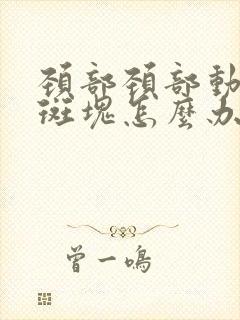 頸部頸部動
斑塊怎麼办
曾一鳴